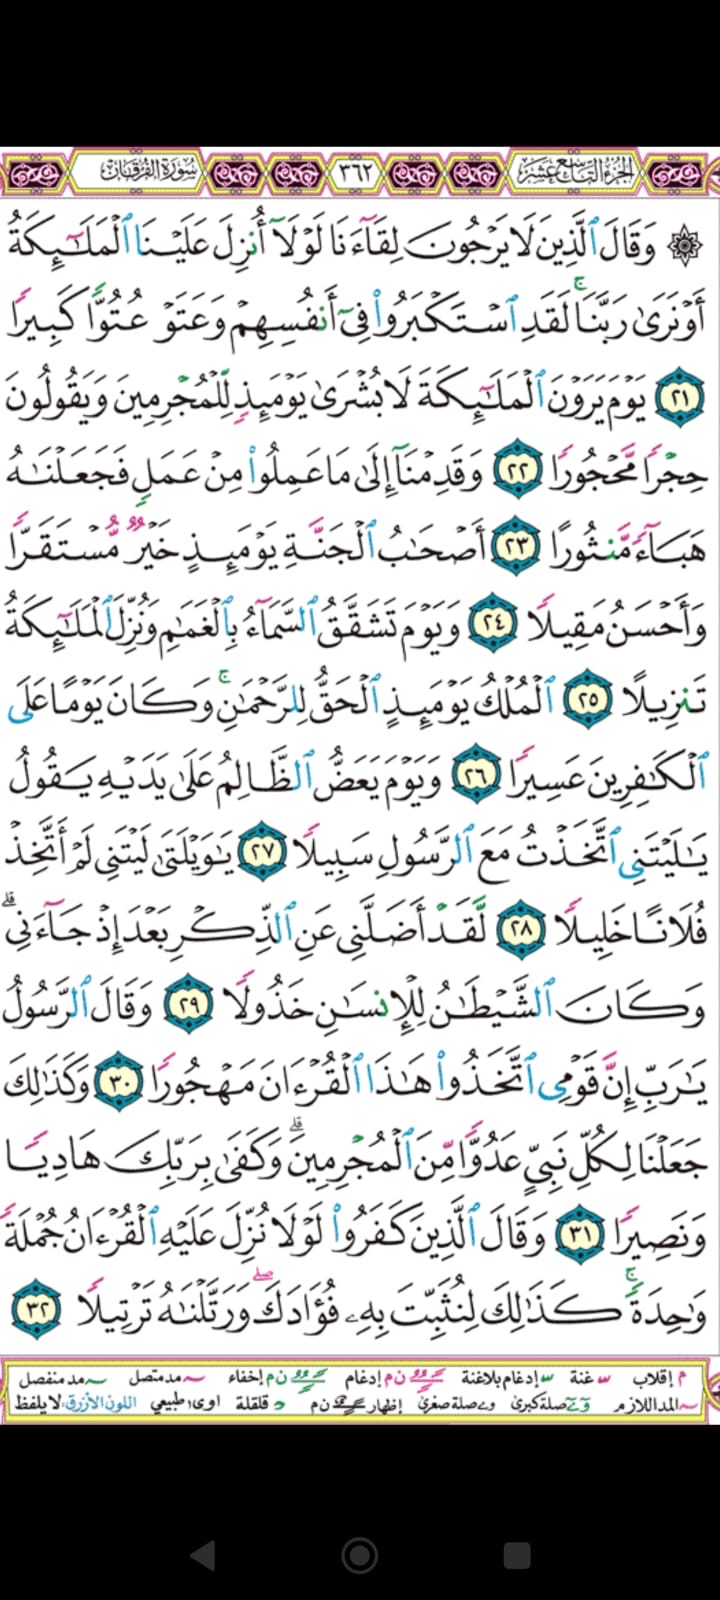 الجزء التاسع عشر ٣٦٢ سورة الفرقان
۞ وَقَالَ ٱلَّذِينَ لَا يَرْجُونَ لِقَآءَنَا لَوْلَآ أُنزِلَ عَلَيْنَا ٱلْمَلَـٰٓئِكَةُ
أَوْ نَرَىٰ رَبَّنَا ۚ لَقَدِ ٱسْتَكْبَرُوا۟ فِىٓ أَنفُسِهِمْ وَعَتَوْ عُتُوًّا كَبِيرًا
٢١ يَوْمَ يَرَوْنَ ٱلْمَلَـٰٓئِكَةَ لَا بُشْرَىٰ يَوْمَئِذٍ لِّلْمُجْرِمِينَ وَيَقُولُونَ
حِجْرًا مَّحْجُورًا ٢٢ وَقَدِمْنَآ إِلَىٰ مَا عَمِلُوا۟ مِنْ عَمَلٍ فَجَعَلْنَـٰهُ
هَبَآءً مَّنثُورًا ٢٣ أَصْحَـٰبُ ٱلْجَنَّةِ يَوْمَئِذٍ خَيْرٌ مُّسْتَقَرًّا
وَأَحْسَنُ مَقِيلًا ٢٤ وَيَوْمَ تَشَقَّقُ ٱلسَّمَآءُ بِٱلْغَمَـٰمِ وَنُزِّلَ ٱلْمَلَـٰٓئِكَةُ
تَنزِيلًا ٢٥ ٱلْمُلْكُ يَوْمَئِذٍ ٱلْحَقُّ لِلرَّحْمَـٰنِ ۚ وَكَانَ يَوْمًا عَلَى
ٱلْكَـٰفِرِينَ عَسِيرًا ٢٦ وَيَوْمَ يَعَضُّ ٱلظَّالِمُ عَلَىٰ يَدَيْهِ يَقُولُ
يَـٰلَيْتَنِى ٱتَّخَذْتُ مَعَ ٱلرَّسُولِ سَبِيلًا ٢٧ يَـٰوَيْلَتَىٰ لَيْتَنِى لَمْ أَتَّخِذْ
فُلَانًا خَلِيلًا ٢٨ لَّقَدْ أَضَلَّنِى عَنِ ٱلذِّكْرِ بَعْدَ إِذْ جَآءَنِى ۗ
وَكَانَ ٱلشَّيْطَـٰنُ لِلْإِنسَـٰنِ خَذُولًا ٢٩ وَقَالَ ٱلرَّسُولُ
يَـٰرَبِّ إِنَّ قَوْمِى ٱتَّخَذُوا۟ هَـٰذَا ٱلْقُرْءَانَ مَهْجُورًا ٣٠ وَكَذَٰلِكَ
جَعَلْنَا لِكُلِّ نَبِىٍّ عَدُوًّا مِّنَ ٱلْمُجْرِمِينَ ۗ وَكَفَىٰ بِرَبِّكَ هَادِيًا
وَنَصِيرًا ٣١ وَقَالَ ٱلَّذِينَ كَفَرُوا۟ لَوْلَا نُزِّلَ عَلَيْهِ ٱلْقُرْءَانُ جُمْلَةً
وَٰحِدَةً ۚ كَذَٰلِكَ لِنُثَبِّتَ بِهِۦ فُؤَادَكَ ۖ وَرَتَّلْنَـٰهُ تَرْتِيلًا ٣٢
م إقلاب غنة إدغام بلاغنة ن م إدغام ن م إخفاء مد متصل مد منفصل
المد اللازم صلة كبرى صلة صغرى إظهار ن م د قلقلة اوى طبيعي اللون الأزرق: لا يلفظ